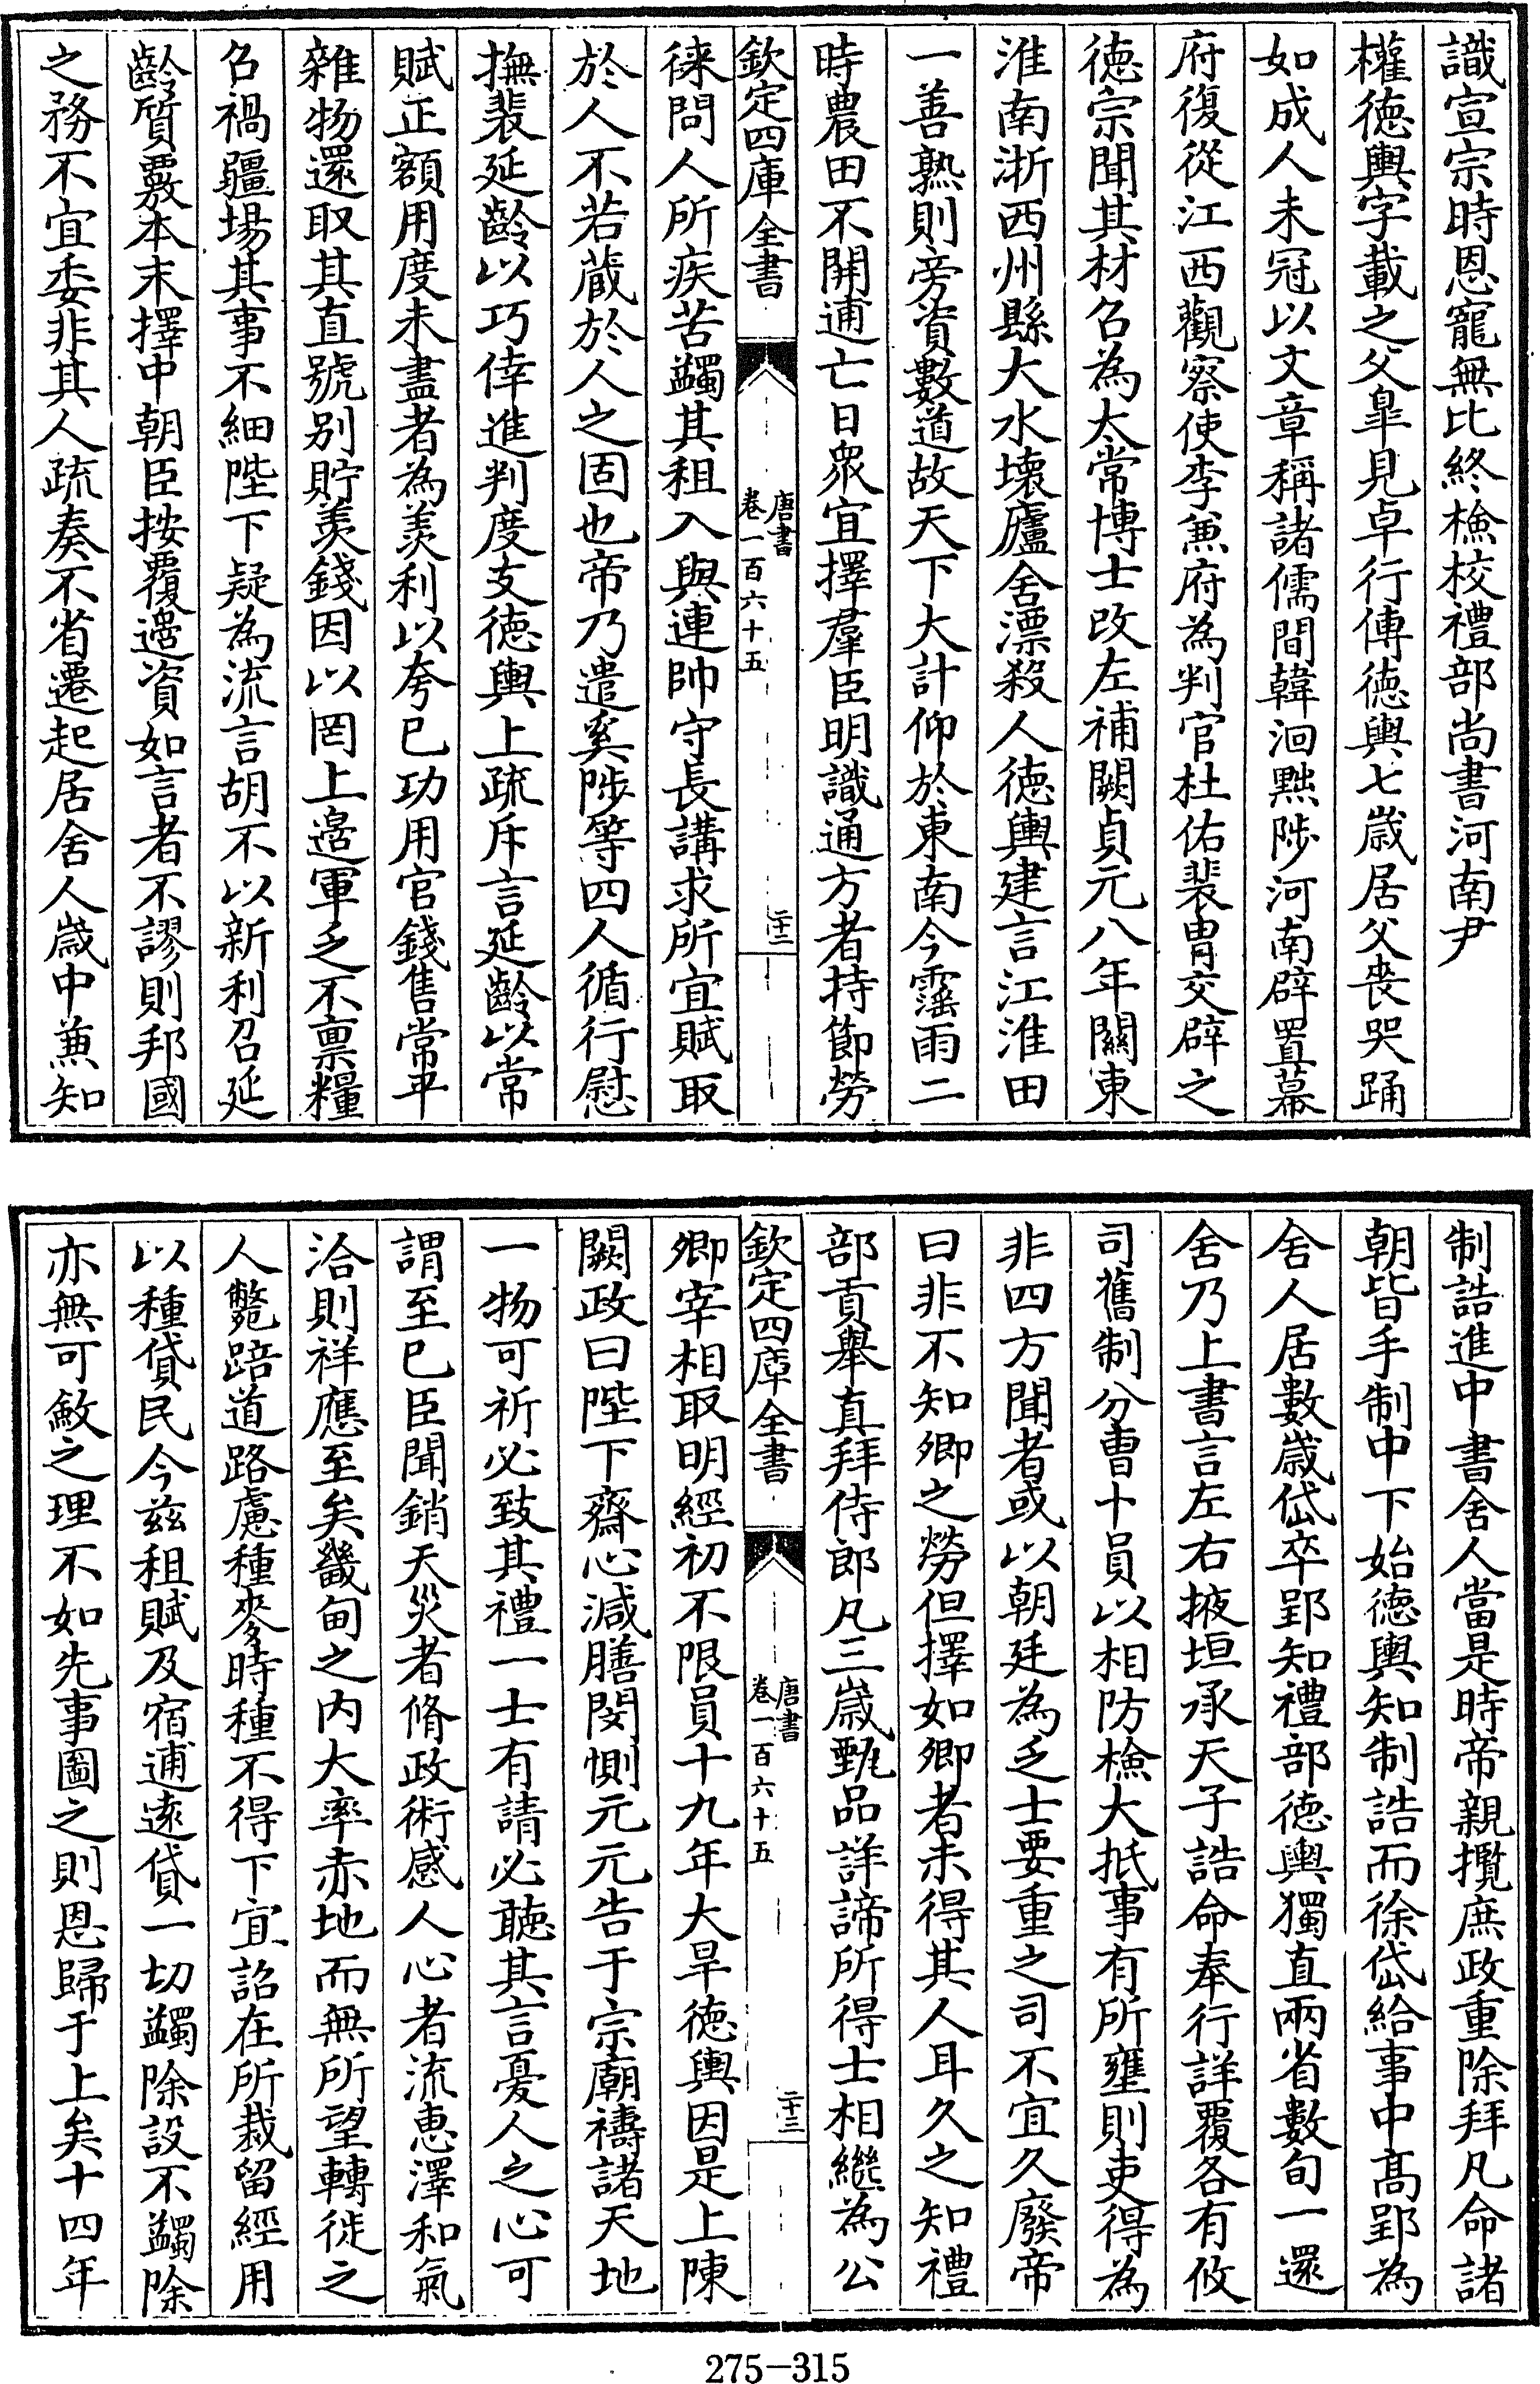 識宣宗時恩寵無比終檢校禮部尚書河南尹
權徳輿字載之父臯見卓行傳徳輿七歳居父喪哭踊
如成人未冠以文章稱諸儒間韓洄黜陟河南辟置幕
府復從江西觀察使李兼府為判官杜佑裴胄交辟之
徳宗聞其材召為太常博士改左補闕貞元八年關東
淮南浙西州縣大水壞廬舍漂殺人徳輿建言江淮田
一善熟則旁資數道故天下大計仰於東南今霪雨二
時農田不開逋亡日衆宜擇羣臣明識通方者持節勞
欽定四庫全書
唐書
卷一百六十五
二十二
徠問人所疾苦蠲其租入與連帥守長講求所宜賦取
於人不若蔵於人之固也帝乃遣奚陟等四人循行慰
撫裴延齡以巧倖進判度支徳輿上疏斥言延齡以常
賦正額用度未盡者為羨利以夸已功用官錢售常平
雜物還取其直號别貯羨錢因以罔上邉軍乏不禀糧
召禍疆場其事不細陛下疑為流言胡不以新利召延
齡質覈本末擇中朝臣按覆邉資如言者不謬則邦國
之務不宜委非其人疏奏不省遷起居舍人歳中兼知
制誥進中書舍人當是時帝親攬庶政重除拜凡命諸
朝皆手制中下始徳輿知制誥而徐岱給事中髙郢為
舍人居數歳岱卒郢知禮部徳輿獨直兩省數旬一還
舍乃上書言左右掖垣承天子誥命奉行詳覆各有攸
司舊制分曹十員以相防檢大抵事有所壅則吏得為
非四方聞者或以朝廷為乏士要重之司不宜久廢帝
曰非不知卿之勞但擇如卿者未得其人耳久之知禮
部貢舉真拜侍郎凡三歳甄品詳諦所得士相繼為公
欽定四庫全書
唐書
卷一百六十五
二十三
卿宰相取明經初不限員十九年大旱徳輿因是上陳
闕政曰陛下齋心減膳閔惻元元告于宗廟禱諸天地
一物可祈必致其禮一士有請必聽其言憂人之心可
謂至已臣聞銷天災者脩政術感人心者流惠澤和氣
洽則祥應至矣畿甸之内大率赤地而無所望轉徙之
人斃踣道路慮種麥時種不得下宜詔在所裁留經用
以種貸民今兹租賦及宿逋逺貸一切蠲除設不蠲除
亦無可斂之理不如先事圖之則恩歸于上矣十四年
275-315